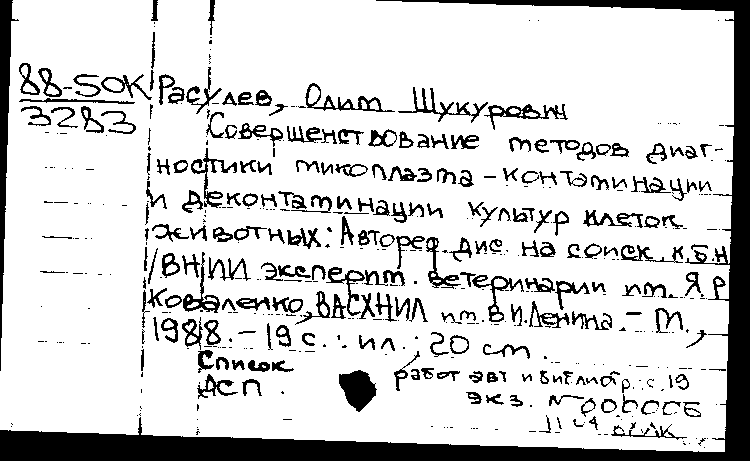 88-50К
3283
Расулев, Олим Шукурович
Совершенствование методов диаг-
ностики микоплазма-контаминации
и деконтаминации культур клеток
животных: Автореф. дис. на соиск. к.б.н
/ВНИИ эксперим. ветеринарии им. Я Р
Коваленко, ВАСХНИЛ им. В И.Ленина. - М.,
1988. - 19 с. : ил. ; 20 см.
Список
работ авт и библиогр: с. 19
ДСП .
экз. № 000006